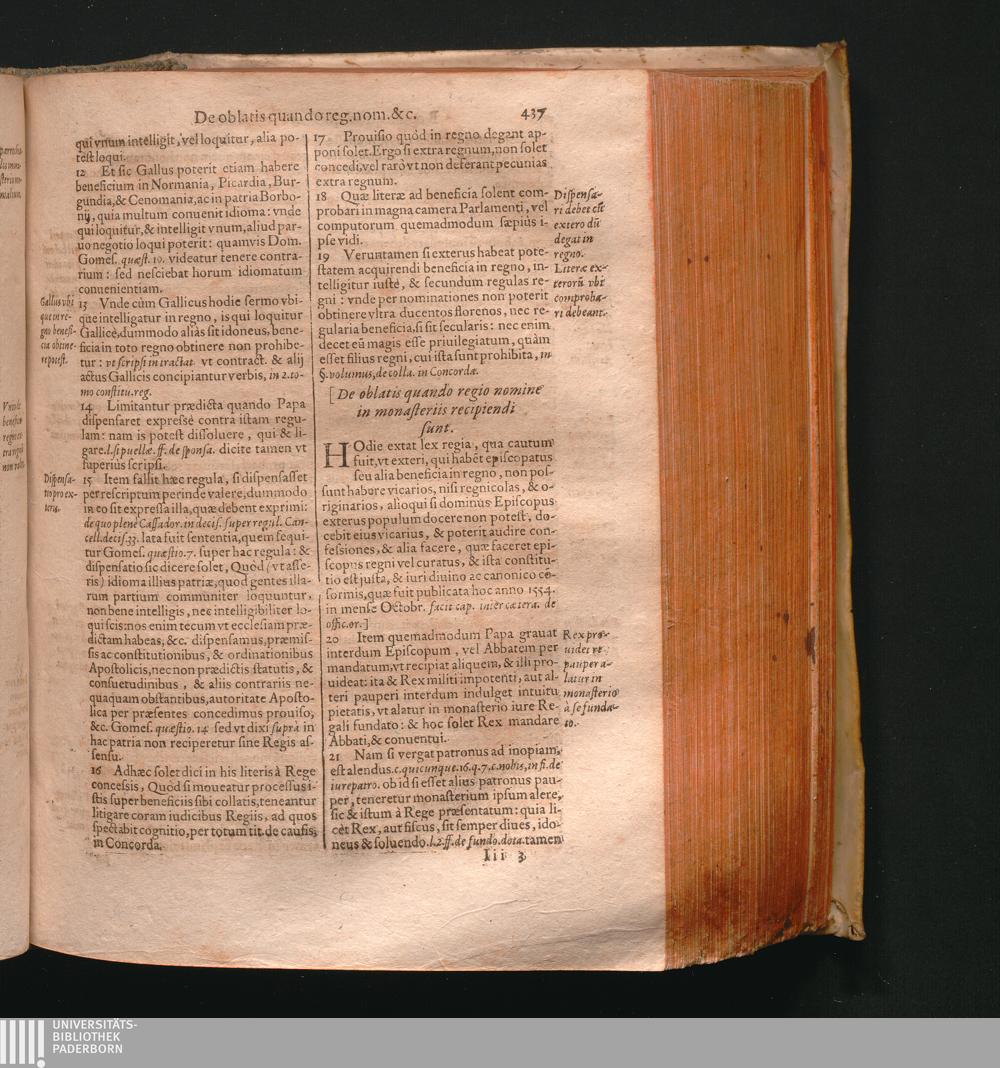 De oblatis quando reg. nom. &c. 437
qui vnum intelligit, vel loquitur, alia po-
test loqui.
12 Et sic Gallus poterit etiam habere
beneficium in Normania, Picardia, Bur-
gundia, & Cenomania, ac in patria Borbo-
nij, quia multum conuenit idioma: vnde
qui loquitur, & intelligit vnum, aliud par-
uo negotio loqui poterit: quamvis Dom.
Gomes. quæst. 10. videatur tenere contra-
rium: sed nesciebat horum idiomatum
conuenientiam.
13 Vnde cùm Gallicus hodie sermo vbi-
que intelligatur in regno, is qui loquitur
Gallicè, dummodo aliàs sit idoneus, bene-
ficia in toto regno obtinere non prohibe-
tur: vt scripsi in tractat. vt contract. & alij
actus Gallicis concipiantur verbis, in 2. to-
mo constitu. reg.
14 Limitantur prædicta quando Papa
dispensaret expressè contra istam regu-
lam: nam is potest dissoluere, qui & li-
gare. l. si puellæ. ff. de sponsa. dicite tamen vt
superius scripsi.
15 Item fallit hæc regula, si dispensasset
per rescriptum perinde valere, dummodo
in eo sit expressa illa, quæ debent exprimi:
de quo plene Cassador. in decis. super regul. Can-
cell. decis. 33. lata fuit sententia, quem sequi-
tur Gomes. quæstio. 7. super hac regula: &
dispensatio sic dicere solet, Quòd (vt asse-
ris) idioma illius patriæ, quod gentes illa-
rum partium communiter loquuntur,
non bene intelligis, nec intelligibiliter lo-
qui scis: nos enim tecum vt ecclesiam præ-
dictam habeas, &c. dispensamus, præmis-
sis ac constitutionibus, & ordinationibus
Apostolicis, nec non prædictis statutis, &
consuetudinibus, & aliis contrariis ne-
quaquam obstantibus, autoritate Aposto-
lica per præsentes concedimus prouiso,
&c. Gomes. quæstio. 14 sed vt dixi suprà in
hac patria non reciperetur sine Regis as-
sensu.
16 Adhæc solet dici in his literis à Rege
concessis, Quòd si moueatur processus i-
stis super beneficiis sibi collatis, teneantur
litigare coram iudicibus Regiis, ad quos
spectabit cognitio, per totum tit. de causis,
in Concorda.
Gallus vbi
que in re-
gno benefi-
cia obtine-
re potest.
Dispensa-
tio pro ex-
tero.
17 Prouisio quòd in regno degant ap-
poni solet. Ergo si extra regnum, non solet
concedi, vel rarò vt non deferant pecunias
extra regnum.
18 Quæ literæ ad beneficia solent com-
probari in magna camera Parlamenti, vel
computorum quemadmodum sæpius i-
pse vidi.
19 Veruntamen si exterus habeat pote-
statem acquirendi beneficia in regno, in-
telligitur iustè, & secundum regulas re-
gni: vnde per nominationes non poterit
obtinere vltra ducentos florenos, nec re-
gularia beneficia, si sit secularis: nec enim
decet eũ magis esse priuilegiatum, quàm
esset filius regni, cui ista sunt prohibita, in
§. volumus, de colla. in Concordæ.
[De oblatis quando regio nomine
in monasteriis recipiendi
sunt.
HOdie extat lex regia, qua cautum
fuit, vt exteri, qui habẽt episcopatus
seu alia beneficia in regno, non pos-
sunt habere vicarios, nisi regnicolas, & o-
riginarios, alioqui si dominus Episcopus
exterus populum docere non potest, do-
cebit eius vicarius, & poterit audire con-
fessiones, & alia facere, quæ faceret epi-
scopus regni vel curatus, & ista constitu-
tio est justa, & iuri diuino ac canonico cõ-
formis, quæ fuit publicata hoc anno 1554.
in mense Octobr. facit cap. inter cætera. de
offic. or.]
20 Item quemadmodum Papa grauat
interdum Episcopum, vel Abbatem per
mandatum, vt recipiat aliquem, & illi pro-
uideat: ita & Rex militi impotenti, aut al-
teri pauperi interdum indulget intuitu
pietatis, vt alatur in monasterio iure Re-
gali fundato: & hoc solet Rex mandare
Abbati, & conuentui.
21 Nam si vergat patronus ad inopiam,
est alendus. c. quicunque. 16. q. 7. c. nobis, in fi. de
iure patro. ob id si esset alius patronus pau-
per, teneretur monasterium ipsum alere,
sic & istum à Rege præsentatum: quia li-
cet Rex, aut fiscus, sit semper diues, ido-
neus & soluendo. l. 2. ff. de fundo. dota. tamen
Iii 3
Dispensa-
ri debet cũ
extero dũ
degat in
regno.
Literæ ex-
terorũ vbi
comproba-
ri debeant.
Rex pro-
uidet vt
pauper a-
latur in
monasterio
à se funda-
to.
UNIVERSITÄTS-
BIBLIOTHEK
PADERBORN